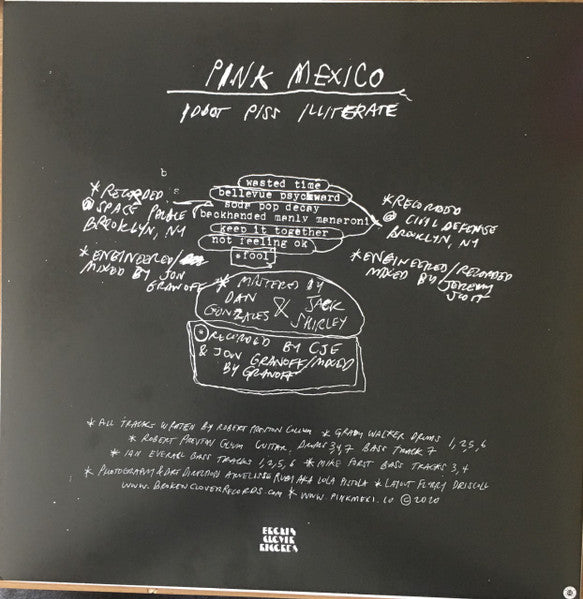 PINK MEXICO
IDIOT PISS ILLITERATE
b
wasted time
bellevue psychward
soda pop decay
backhanded manly manaroni
keep it together
not feeling ok
*fool
* RECORDED
@ SPACE
BROOKLYN, NY
* ENGINEERED/
MIXED BY JON
GRANOFF
* RECORDED
@ CIVIL DEFENSE
BROOKLYN, NY
* ENGINEERED/RECORDED
MIXED BY JEREMY
SCOTT
* MASTERED BY
DAN GONZALES & JACK SHIRLEY
* RECORDED BY CJE
& JON GRANOFF/MIXED
BY GRANOFF
* ALL TRACKS WRITTEN BY ROBERT PRESTON COLLUM * GRADY WALKER DRUMS 1,2,5,6
* ROBERT PRESTON COLLUM GUITAR, DRUMS 3,4,7 BASS TRACK 7
* IAN EVERALL BASS TRACKS 1,2,5,6 * MIKE BASS TRACKS 3,4
* PHOTOGRAPHY & ART DIRECTION RUBI AKA LOLA PISTOLA * LAYOUT FLURRY DRISCOLL
WWW.BROKENCLOVERRECORDS.COM * WWW.PINKMEXI.CO © 2020
BROKEN
CLOVER
RECORDS